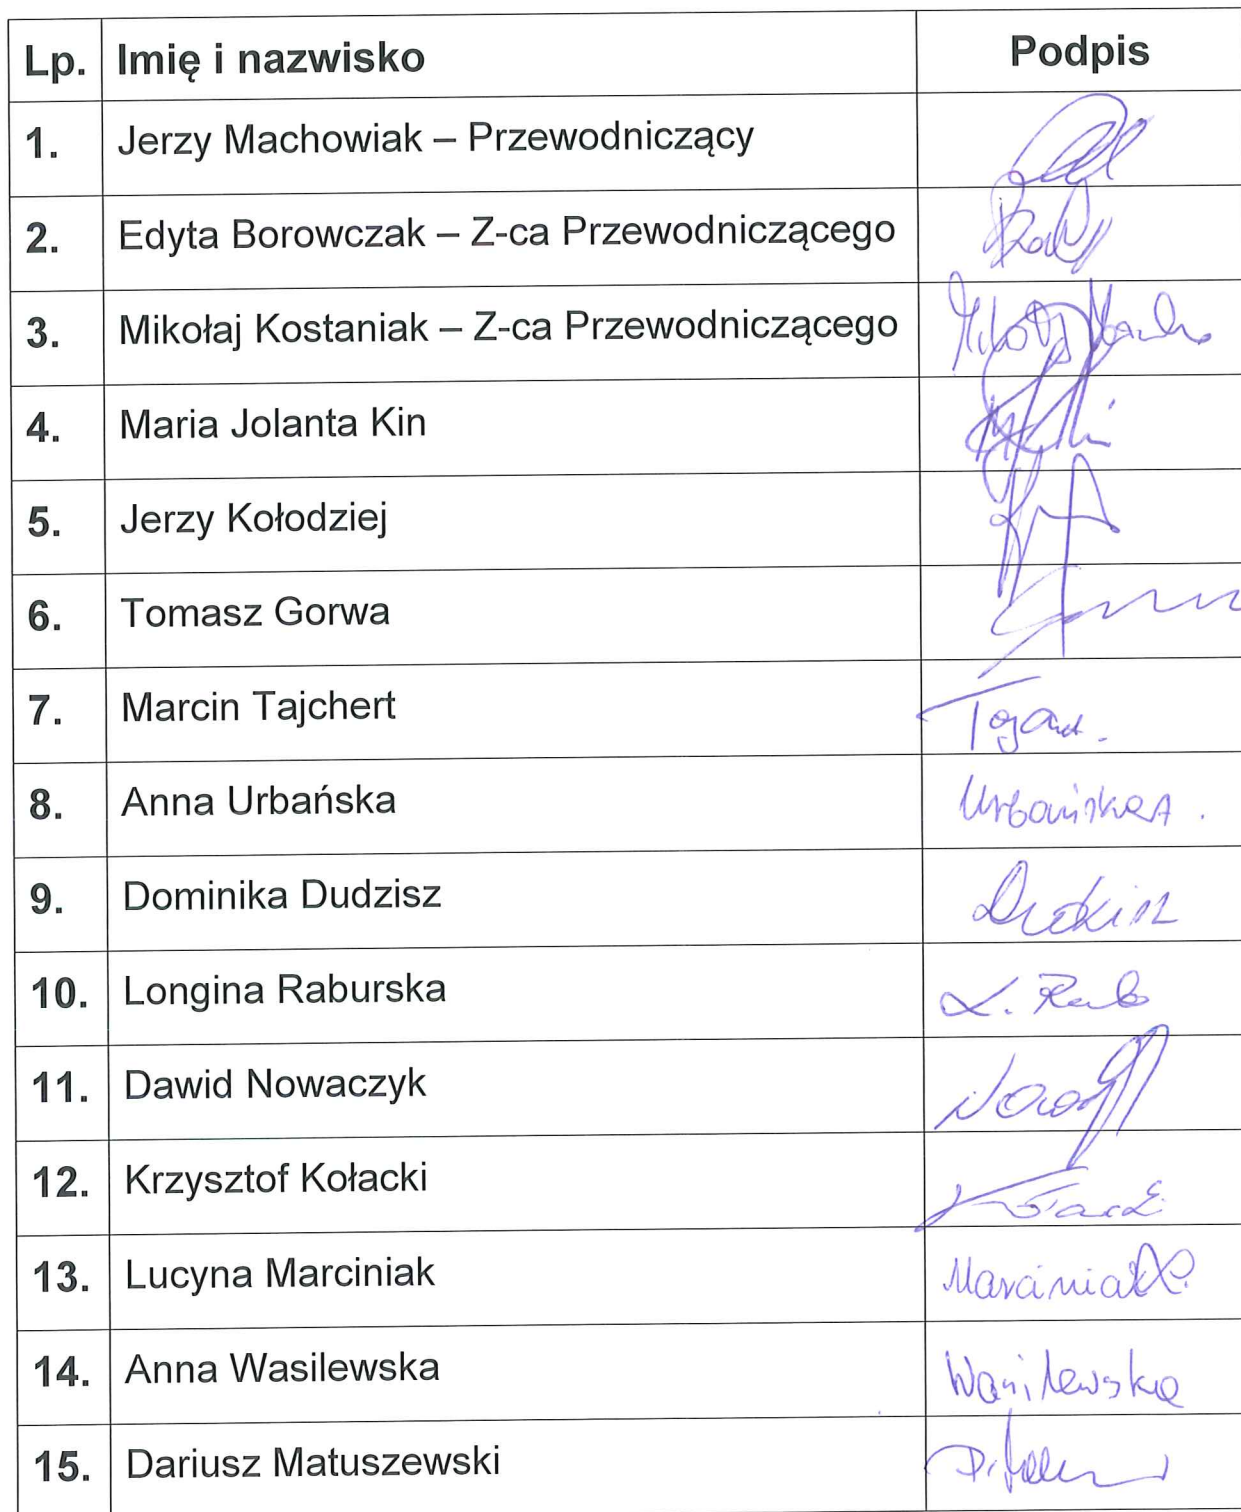 Lp. Imię i nazwisko Podpis
1. Jerzy Machowiak – Przewodniczący
2. Edyta Borowczak – Z-ca Przewodniczącego
3. Mikołaj Kostaniak – Z-ca Przewodniczącego Mikołaj
4. Maria Jolanta Kin
5. Jerzy Kołodziej
6. Tomasz Gorwa
7. Marcin Tajchert
8. Anna Urbańska Urbańska A.
9. Dominika Dudzisz
10. Longina Raburska L. Rab
11. Dawid Nowaczyk
12. Krzysztof Kołacki
13. Lucyna Marciniak Marciniak L.
14. Anna Wasilewska Wasilewska
15. Dariusz Matuszewski